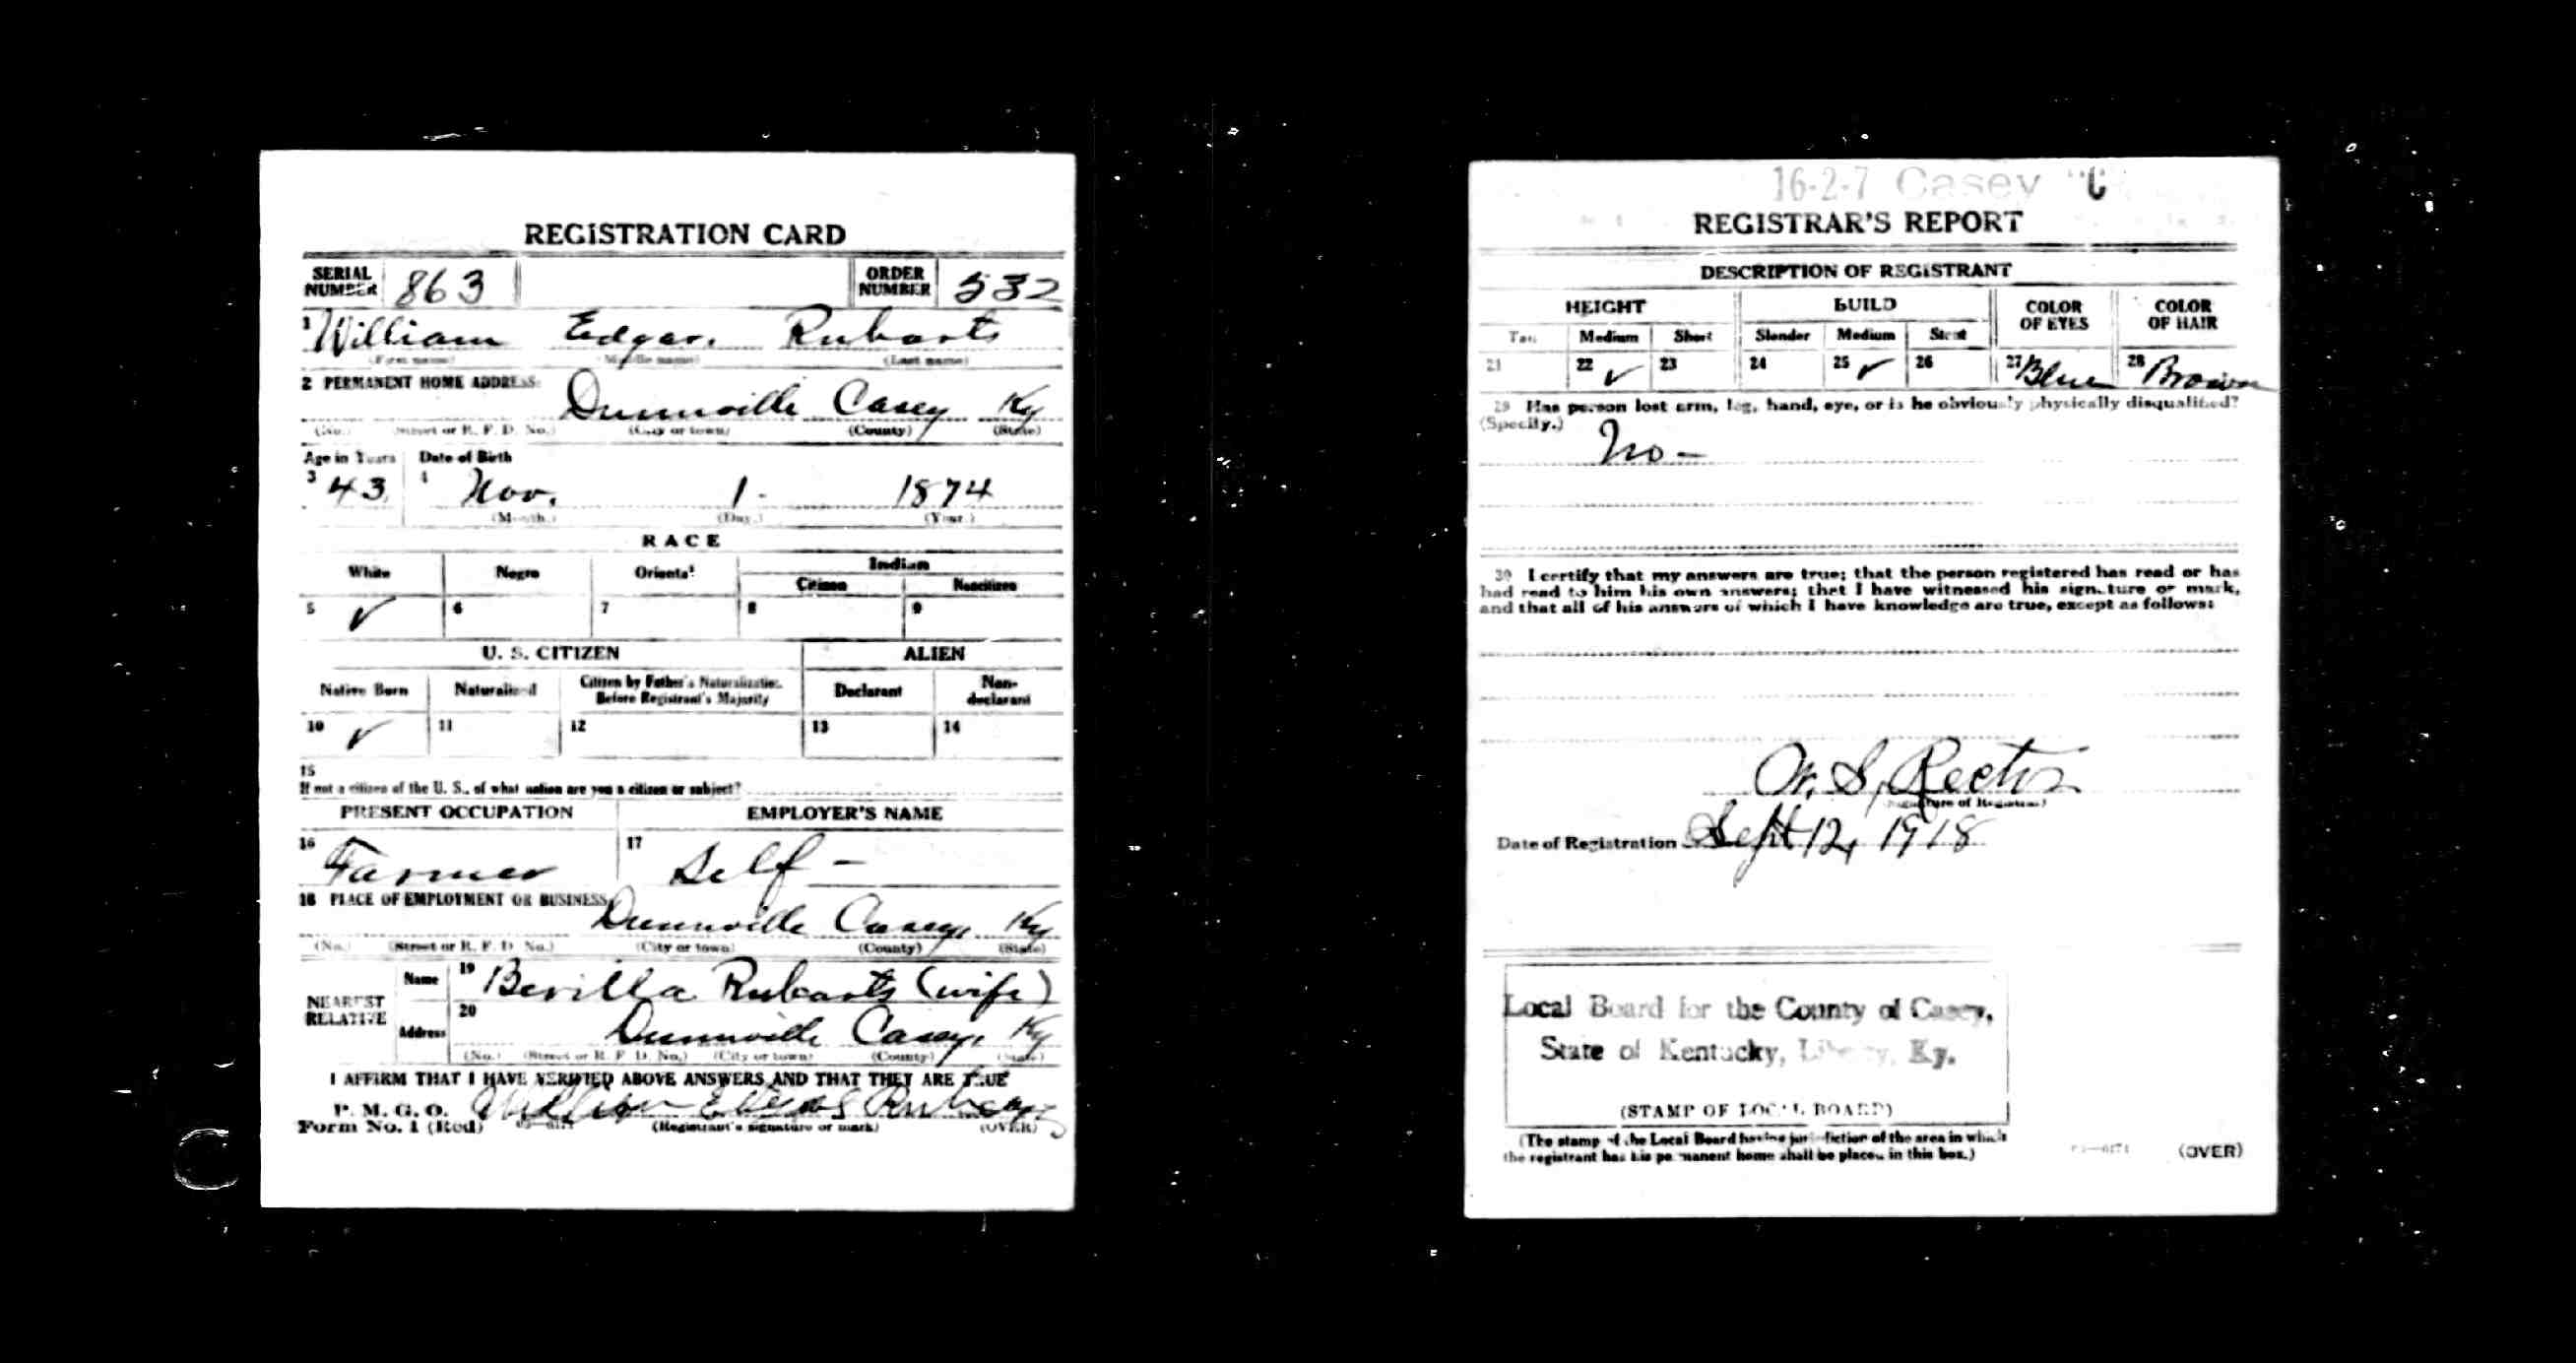 REGISTRATION CARD
SERIAL NUMBER 863 ORDER NUMBER 532
1 William Edgar. Rubarts
(First name) (Middle name) (Last name)
2 PERMANENT HOME ADDRESS:
Dunnville Casey Ky
(No.) (Street or R. F. D. No.) (City or town) (County) (State)
Age in Years Date of Birth
3 43 4 Nov. 1. 1874
(Month.) (Day.) (Year.)
RACE
White Negro Oriental Indian
Citizen Noncitizen
5 ✓ 6 7 8 9
U. S. CITIZEN ALIEN
Native Born Naturalized Citizen by Father's Naturalization Before Registrant's Majority Declarant Non-declarant
10 ✓ 11 12 13 14
15
If not a citizen of the U. S., of what nation are you a citizen or subject?
PRESENT OCCUPATION EMPLOYER'S NAME
16 Farmer 17 Self -
18 PLACE OF EMPLOYMENT OR BUSINESS
Dunnville Casey, Ky
(No.) (Street or R. F. D. No.) (City or town) (County) (State)
NEAREST RELATIVE
Name 19 Berilla Rubarts (wife)
Address 20 Dunnville Casey, Ky
(No.) (Street or R. F. D. No.) (City or town) (County) (State)
I AFFIRM THAT I HAVE VERIFIED ABOVE ANSWERS AND THAT THEY ARE TRUE
P. M. G. O.
Form No. 1 (Red) (Registrant's signature or mark) (OVER)
16-2-7 Casey "C
REGISTRAR'S REPORT
DESCRIPTION OF REGISTRANT
HEIGHT BUILD COLOR OF EYES COLOR OF HAIR
Tall Medium Short Slender Medium Stout
21 22 ✓ 23 24 25 ✓ 26 27 Blue 28 Brown
29 Has person lost arm, leg, hand, eye, or is he obviously physically disqualified?
(Specify.)
No -
30 I certify that my answers are true; that the person registered has read or has
had read to him his own answers; that I have witnessed his signature or mark,
and that all of his answers of which I have knowledge are true, except as follows:
W. S. Rector
(Signature of Registrar)
Date of Registration Sept 12, 1918
Local Board for the County of Casey,
State of Kentucky, Liberty, Ky.
(STAMP OF LOCAL BOARD)
(The stamp of the Local Board having jurisdiction of the area in which
the registrant has his permanent home shall be placed in this box.)
(OVER)